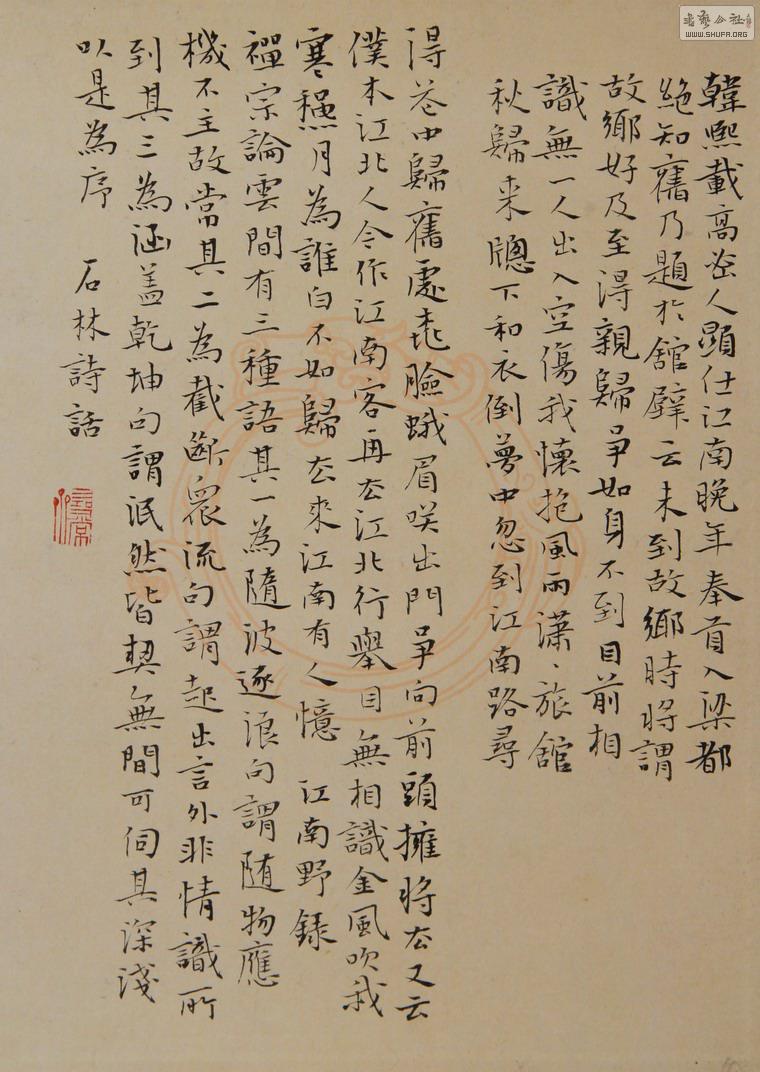 韓熙載高密人顯仕江南晚年奉首入梁都
絶知舊乃題於舘壁云未到故鄉時將謂
故鄉好及至淂親歸爭如身不到目前相
識無一人出入空傷我懷抱風雨瀟、旅舘
秋歸来牕下和衣倒夢中忽到江南路尋
淂花中歸舊處桃臉蛾眉咲出門爭向前頭擁將去又云
僕本江北人今作江南客再去江北行舉目無相識金風吹我
寒穐月為誰白不如歸去來江南有人憶 江南野錄
禪宗論雲間有三種語其一為隨波逐浪句謂随物應
機不主故常其二為截斷衆流句謂超出言外非情識所
到其三為涵盖乾坤句謂泯然皆契無間可伺其深淺
以是為序 石林詩話
尋常
書藝公社
WWW.SHUFA.ORG